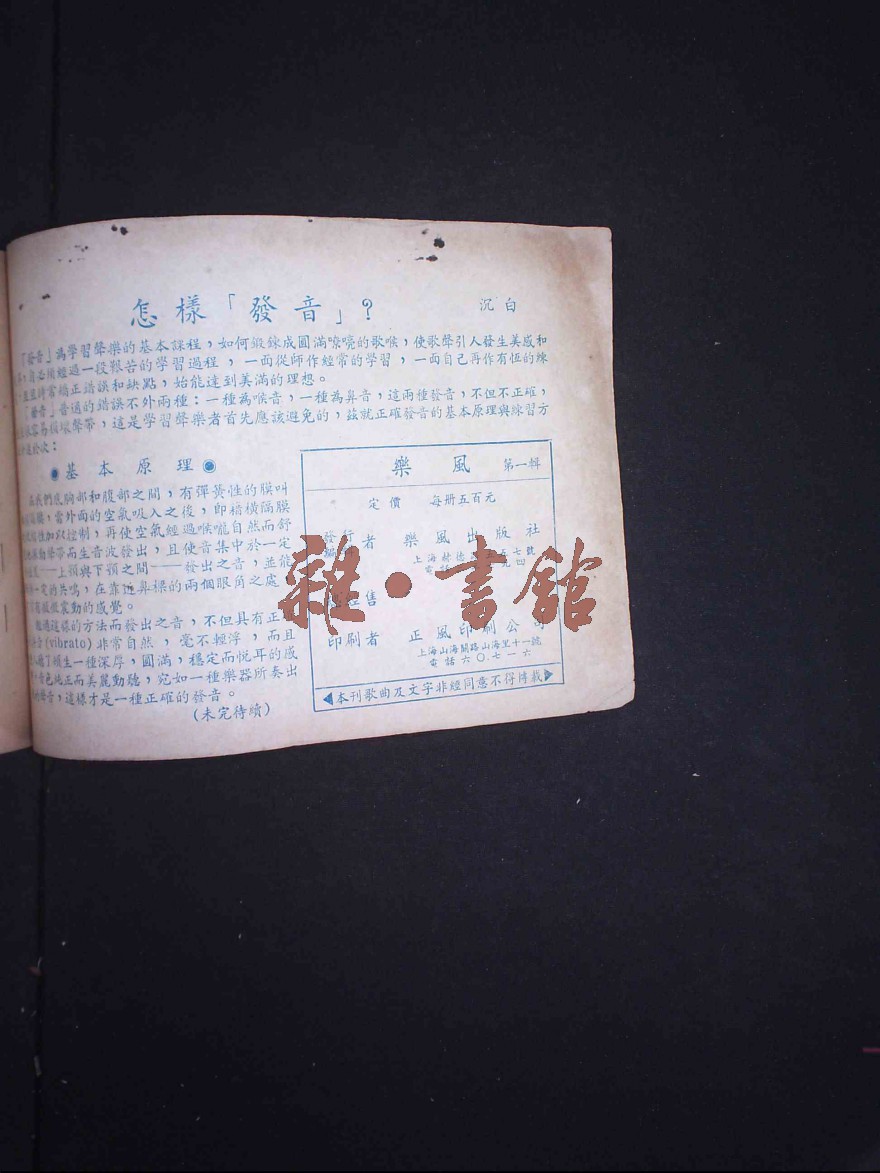 怎樣「發音」？
沉白
「發音」為學習聲樂的基本課程，如何鍛鍊成圓滿嘹喨的歌喉，使歌聲引人發生美感和
，自必須經過一段艱苦的學習過程，一面從師作經常的學習，一面自己再作有恆的練
，並且時常矯正錯誤和缺點，始能達到美滿的理想。
「發音」普通的錯誤不外兩種：一種為喉音，一種為鼻音，這兩種發音，不但不正確，
且很容易損壞聲帶，這是學習聲樂者首先應該避免的，茲就正確發音的基本原理與練習方
於次：
基本原理
在我們底胸部和腹部之間，有彈簧性的膜叫
膈膜，當外面的空氣吸入之後，即藉橫隔膜
加以控制，再使空氣經過喉嚨自然而舒
聲帶而生音波發出，且使音集中於一定
——上顎與下顎之間——發出之音，並能
一定的共鳴，在靠近鼻樑的兩個眼角之處，
微震動的感覺。
經過這樣的方法而發出之音，不但具有正
音(vibrato)非常自然，毫不輕浮，而且
生一種深厚，圓滿，穩定而悅耳的感
音色純正而美麗動聽，宛如一種樂器所奏出
聲音，這樣才是一種正確的發音。
(未完待續)
樂風 第一輯
定價 每冊五百元
發行者 樂風出版社
上海赫德
電話
售
印刷者 正風印刷公司
上海山海關路山海里十一號
電話六〇．七一六
◀本刊歌曲及文字非經同意不得轉載▶
雜·書館